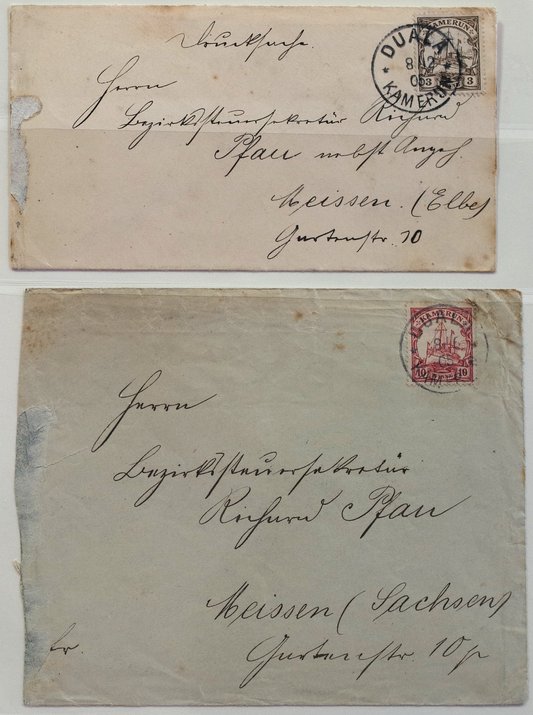 Drucksache.
KAMERUN
3 3
DUALA
8 12
05
KAMERUN
Herrn
Bezirkssteuersekretär Richard
Pfau nebst Angeh.
Meissen. (Elbe)
Gartenstr. 10
KAMERUN
10 10
8
05
Herrn
Bezirkssteuersekretär
Richard Pfau
Meissen (Sachsen)
Gartenstr. 10
fr.